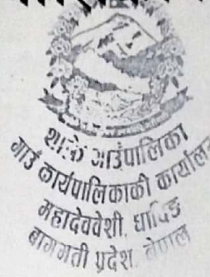 गाउँपालिका
गाउँ कार्यपालिकाको कार्यालय
महादेववेशी, धादिङ
बागमती प्रदेश, नेपाल